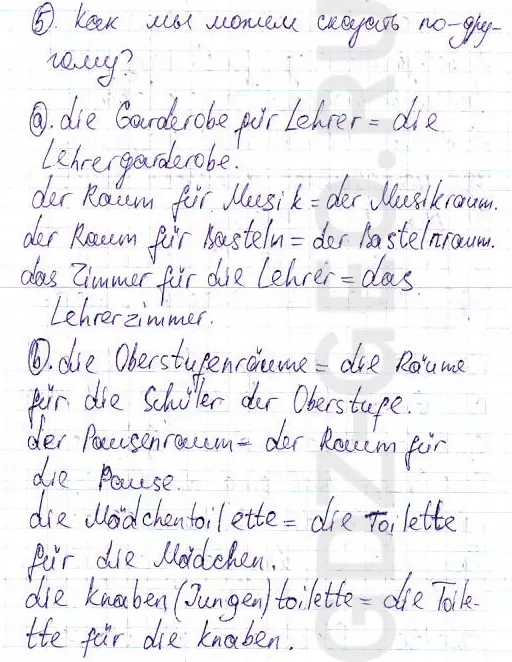 ⑤. Как мы можем сказать по-дру-
гому?
ⓐ. die Garderobe für Lehrer = die
Lehrergarderobe.
der Raum für Musik = der Musikraum.
der Raum für Basteln = der Bastelnraum.
das Zimmer für die Lehrer = das
Lehrerzimmer.
ⓑ. die Oberstufenräume = die Räume
für die Schüler der Oberstufe.
der Pausenraum = der Raum für
die Pause.
die Mädchentoilette = die Toilette
für die Mädchen.
die Knaben (Jungen) toilette = die Toile-
tte für die Knaben.
GDZ-GEO.RU